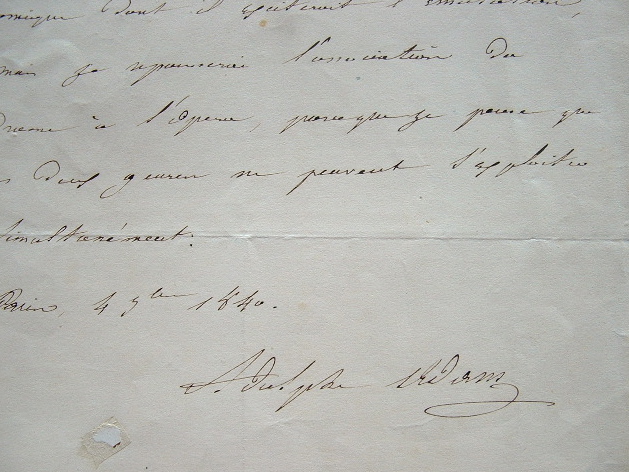 omique dont il exciterait l'émulation,
mais je repousserai l'association du
Drame à l'opéra, parceque je pense que
s deux genres ne peuvent s'exploiter
simultanément.
Paris, 4 9bre 1840.
Adolphe Adam